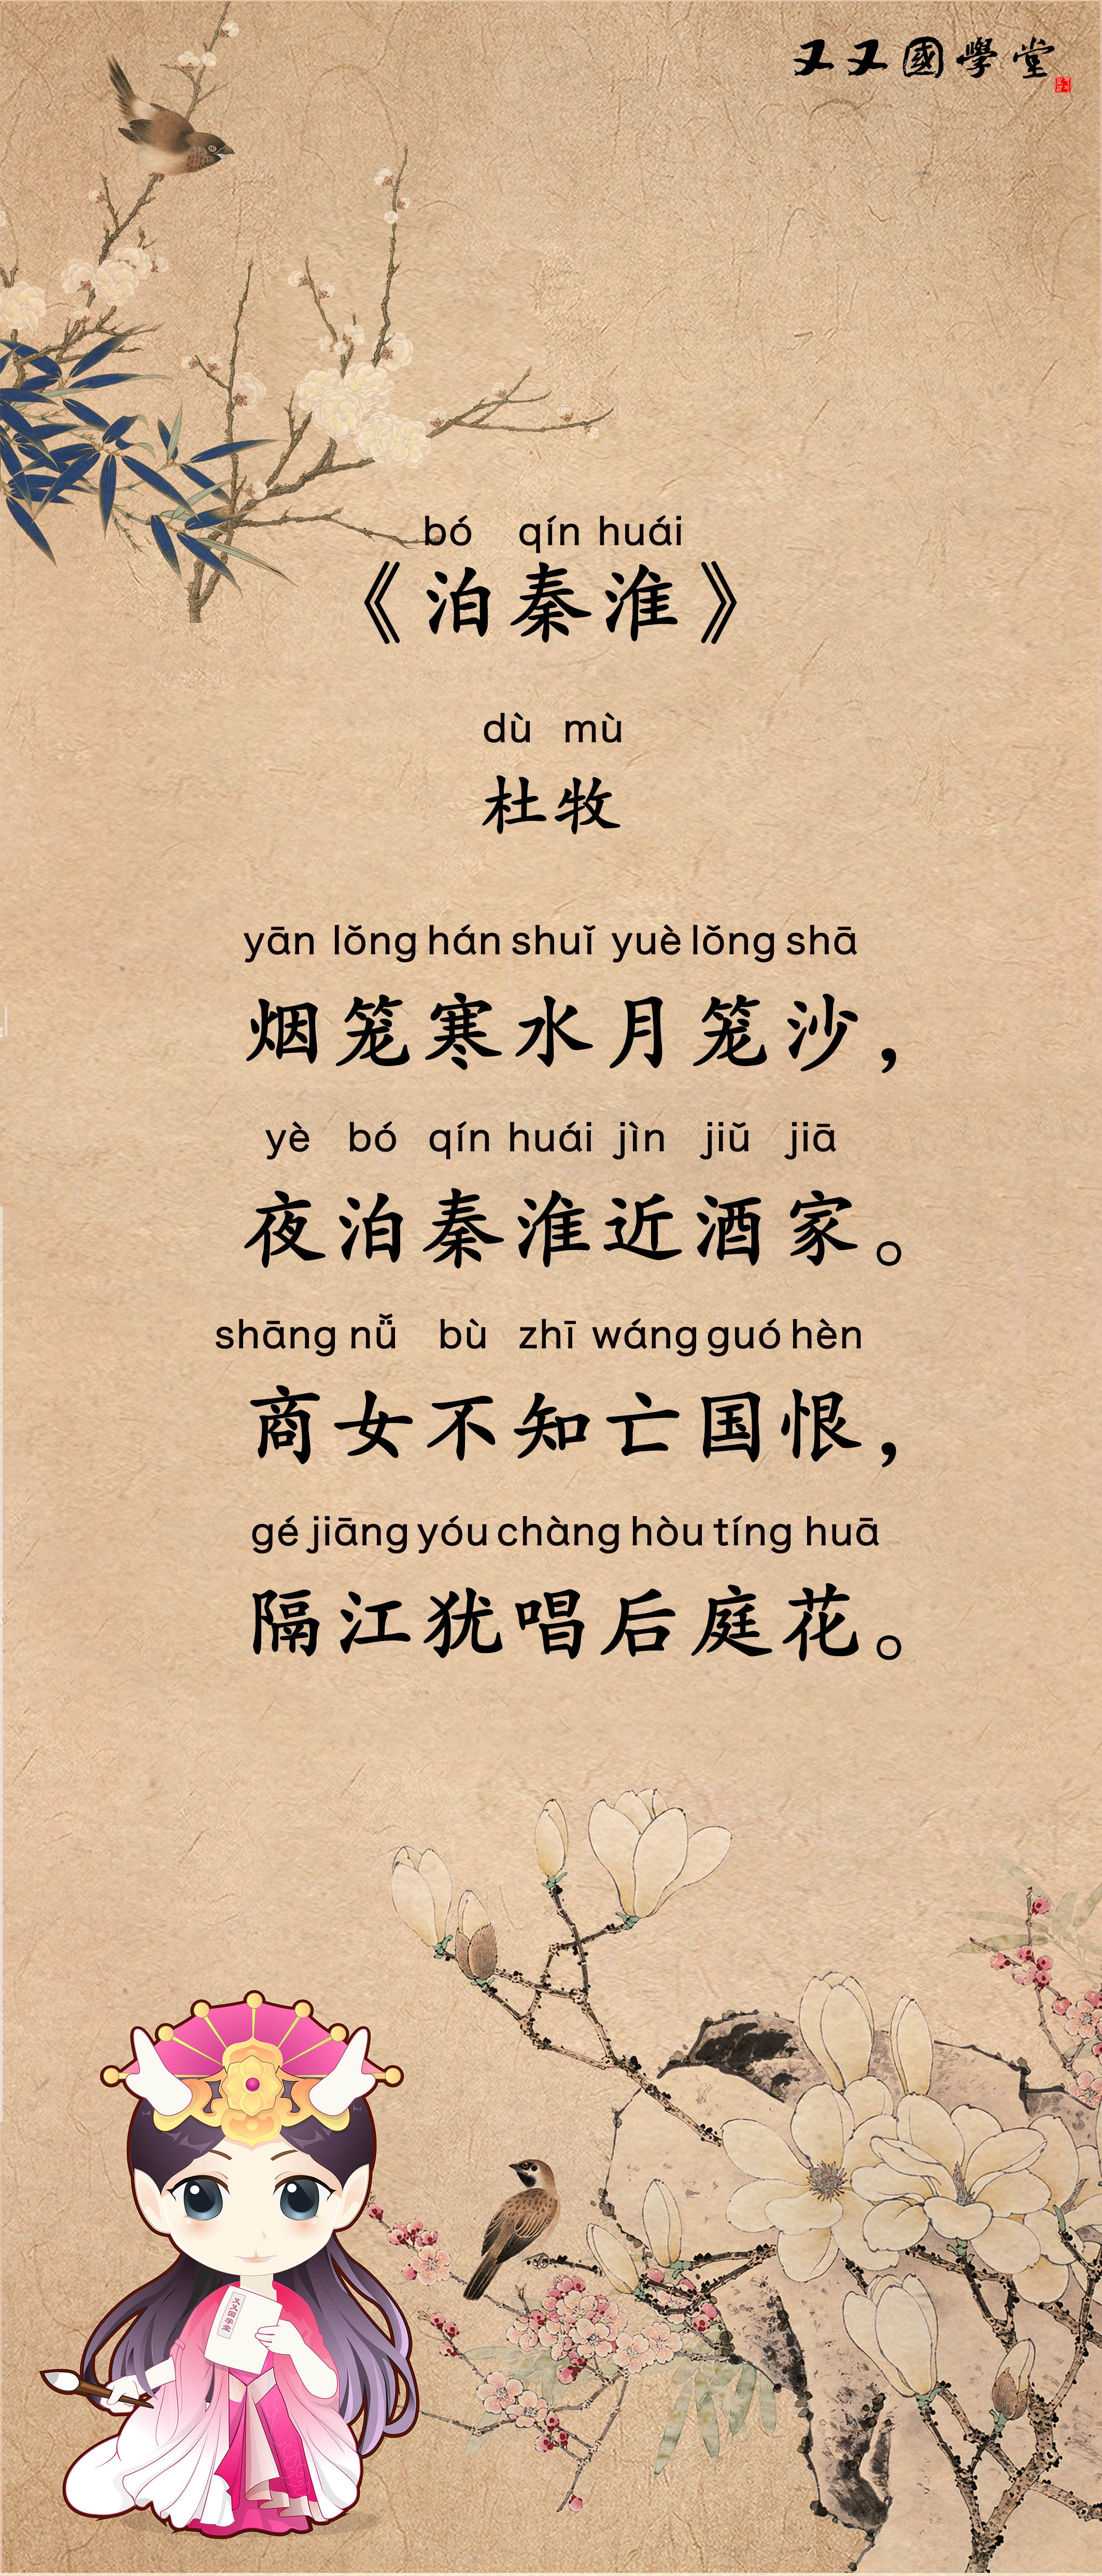 又又國學堂
bó qín huái
《泊秦淮》
dù mù
杜牧
yān lǒng hán shuǐ yuè lǒng shā
烟笼寒水月笼沙，
yè bó qín huái jìn jiǔ jiā
夜泊秦淮近酒家。
shāng nǚ bù zhī wáng guó hèn
商女不知亡国恨，
gé jiāng yóu chàng hòu tíng huā
隔江犹唱后庭花。
又又国学堂